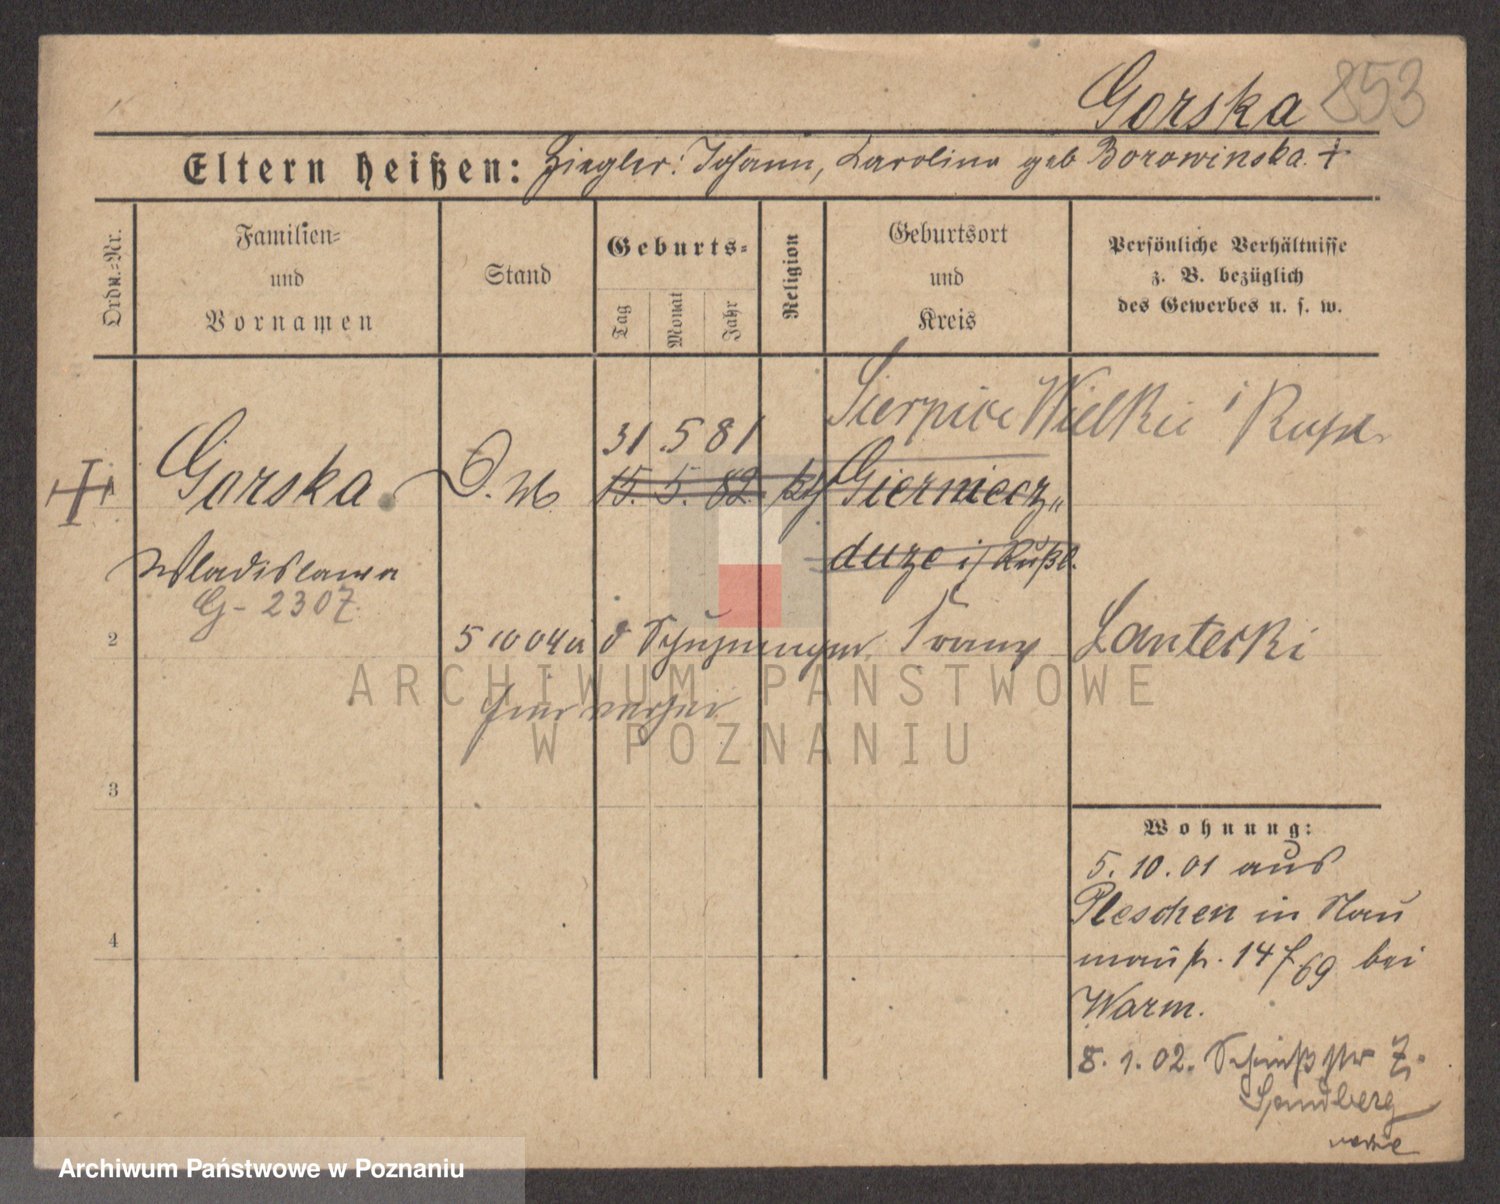 Gorska 853
Eltern heißen: Ziegler: Johann, Karolina geb Borowinska. +
Ordn.=Nr.
Familien=
und
Vornamen
Stand
Geburts=
Tag
Monat
Jahr
Religion
Geburtsort
und
Kreis
Persönliche Verhältnisse
z. B. bezüglich
des Gewerbes u. s. w.
Wielkie i Russl.
31. 5 81
Gorska D. M 15. 5. 82 kt Gierniecz„
duze i/ Rußl.
Wladislawa
G- 2307.
2
5 10 04 Franz Lanterki
3
4
Wohnung:
5. 10. 01 aus
Pleschen in Nau
mannstr. 14 f/69 bei
Warm.
8. 1. 02. Schießstr 7.
Sandberg
ARCHIWUM PAŃSTWOWE
W POZNANIU
Archiwum Państwowe w Poznaniu